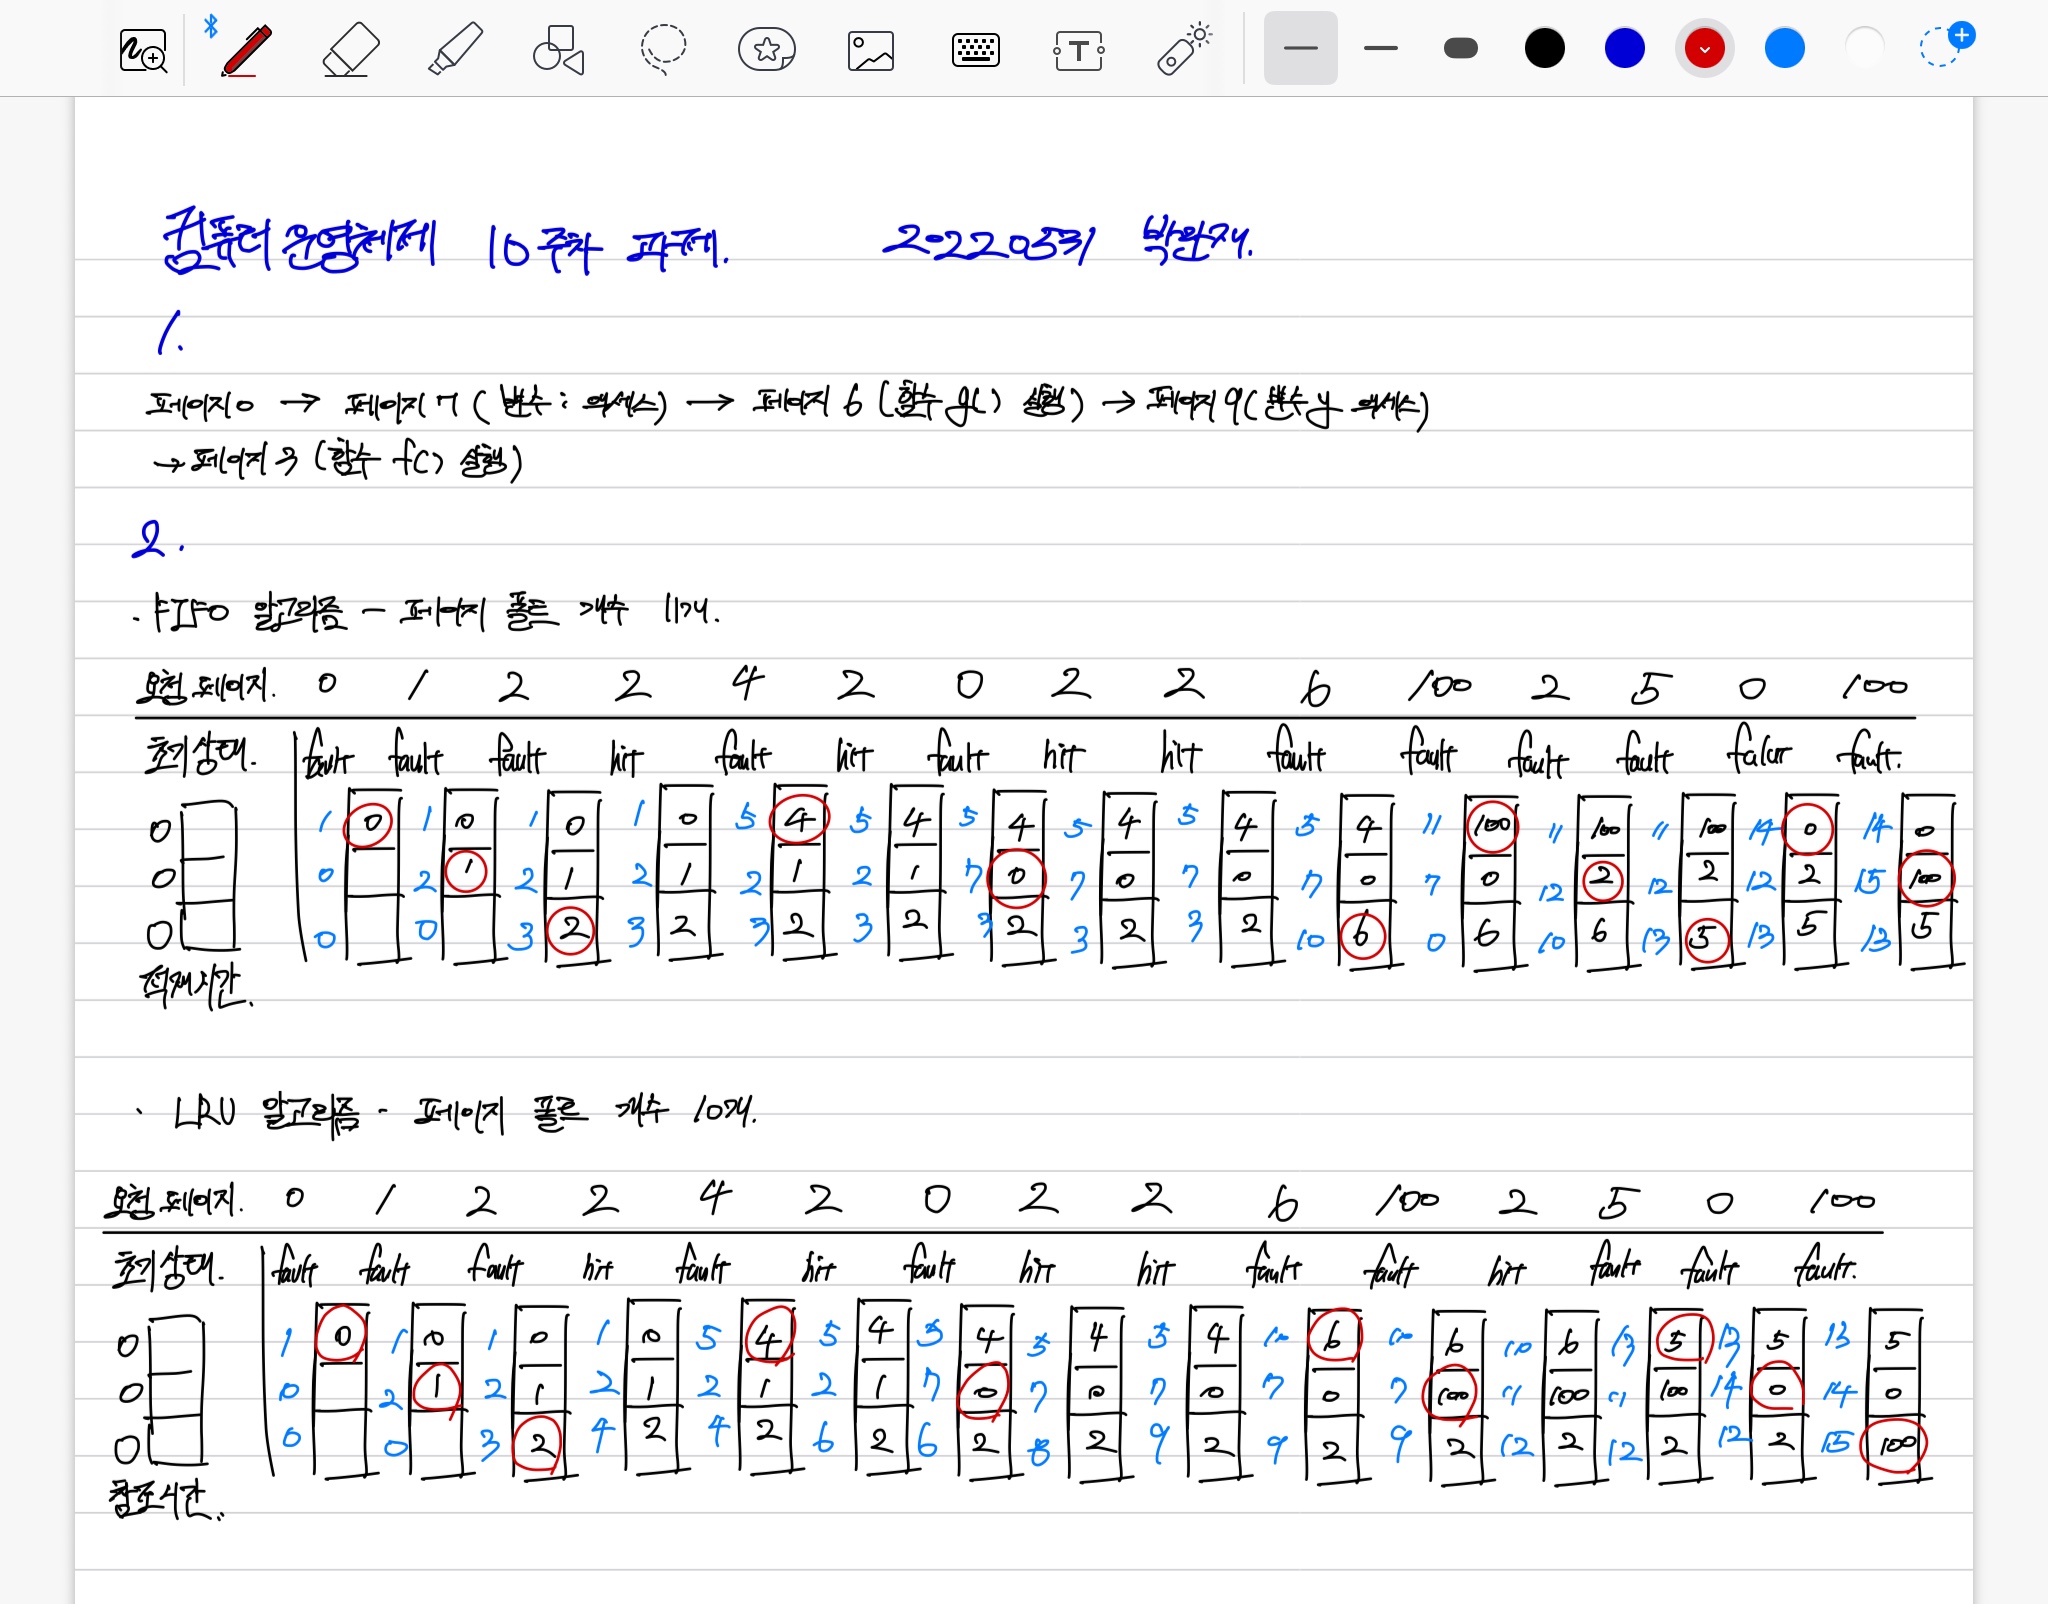 컴퓨터 운영체제 10주차 과제. 20220531 박완재.
1.
페이지0 → 페이지7 (변수 i 액세스) → 페이지 6 (함수 g() 실행) → 페이지 9 (변수 y 액세스)
→ 페이지 3 (함수 f() 실행)
2.
· FIFO 알고리즘 - 페이지 폴트 개수 11개.
요청 페이지. 0 1 2 2 4 2 0 2 2 6 100 2 5 0 100
초기상태. fault fault fault hit fault hit fault hit hit fault fault fault fault falur fault.
0 1 0 1 0 1 0 1 0 5 4 5 4 5 4 5 4 5 4 5 4 11 100 11 100 11 100 14 0 14 0
0 0 2 1 2 1 2 1 2 1 2 1 7 0 7 0 7 0 7 0 7 0 12 2 12 2 12 2 15 100
0 0 0 3 2 3 2 3 2 3 2 3 2 3 2 3 2 10 6 0 6 10 6 13 5 13 5 13 5
적재시간.
· LRU 알고리즘 - 페이지 폴트 개수 10개.
요청 페이지. 0 1 2 2 4 2 0 2 2 6 100 2 5 0 100
초기상태. fault fault fault hit fault hit fault hit hit fault fault hit fault fault fault.
0 1 0 1 0 1 0 1 0 5 4 5 4 5 4 5 4 5 4 10 6 10 6 10 6 13 5 13 5 13 5
0 0 2 1 2 1 2 1 2 1 2 1 7 0 7 0 7 0 7 0 7 100 11 100 11 100 14 0 14 0
0 0 0 3 2 4 2 4 2 6 2 6 2 8 2 9 2 9 2 9 2 12 2 12 2 12 2 15 100
참조시간.